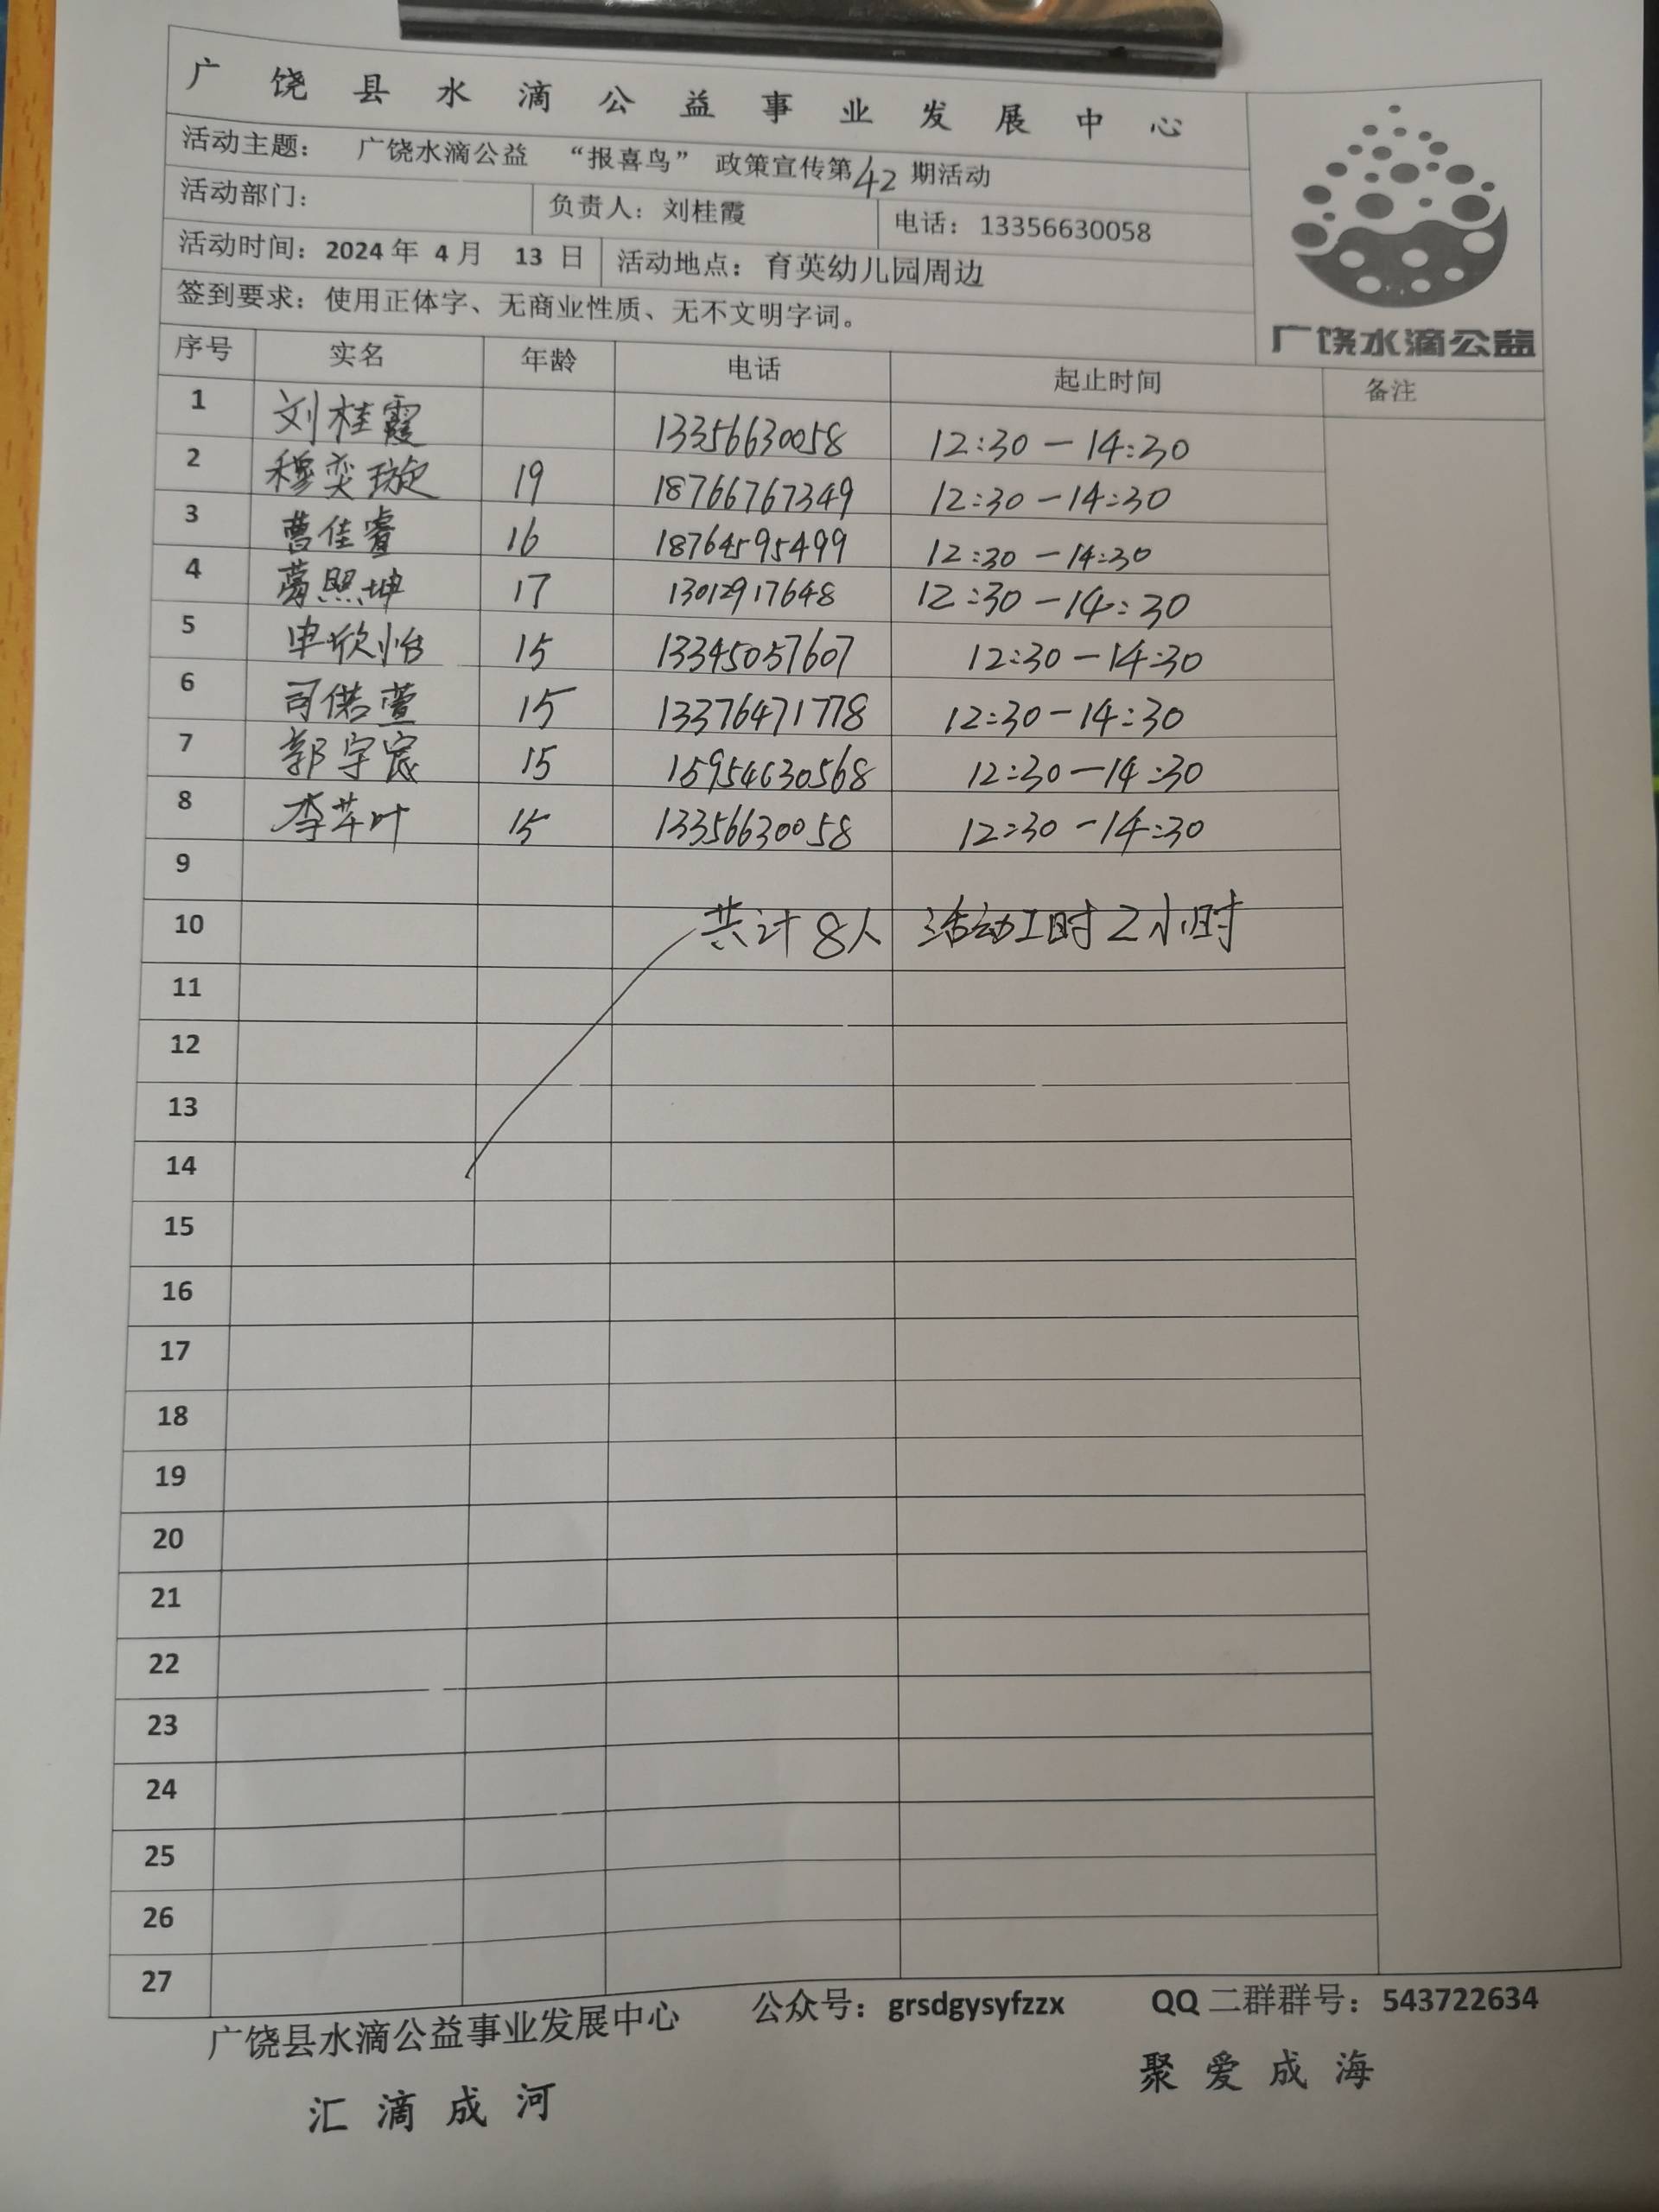 广饶县水滴公益事业发展中心
活动主题： 广饶水滴公益 “报喜鸟” 政策宣传第42期活动
活动部门： 负责人：刘桂霞 电话：13356630058
活动时间：2024年 4月 13日 活动地点：育英幼儿园周边
签到要求：使用正体字、无商业性质、无不文明字词。
广饶水滴公益
序号 实名 年龄 电话 起止时间 备注
1 刘桂霞 13356630058 12:30－14:30
2 穆奕璇 19 18766767349 12:30－14:30
3 曹佳睿 16 18764595499 12:30－14:30
4 照坤 17 13012917648 12:30－14:30
5 申欣怡 15 13345057607 12:30－14:30
6 司偌萱 15 13376471778 12:30－14:30
7 郭宇宸 15 15954630568 12:30－14:30
8 李芊叶 15 13356630058 12:30－14:30
9
10 共计8人 活动工时2小时
11
12
13
14
15
16
17
18
19
20
21
22
23
24
25
26
27
广饶县水滴公益事业发展中心 公众号：grsdgysyfzzx QQ二群群号：543722634
汇滴成河 聚爱成海